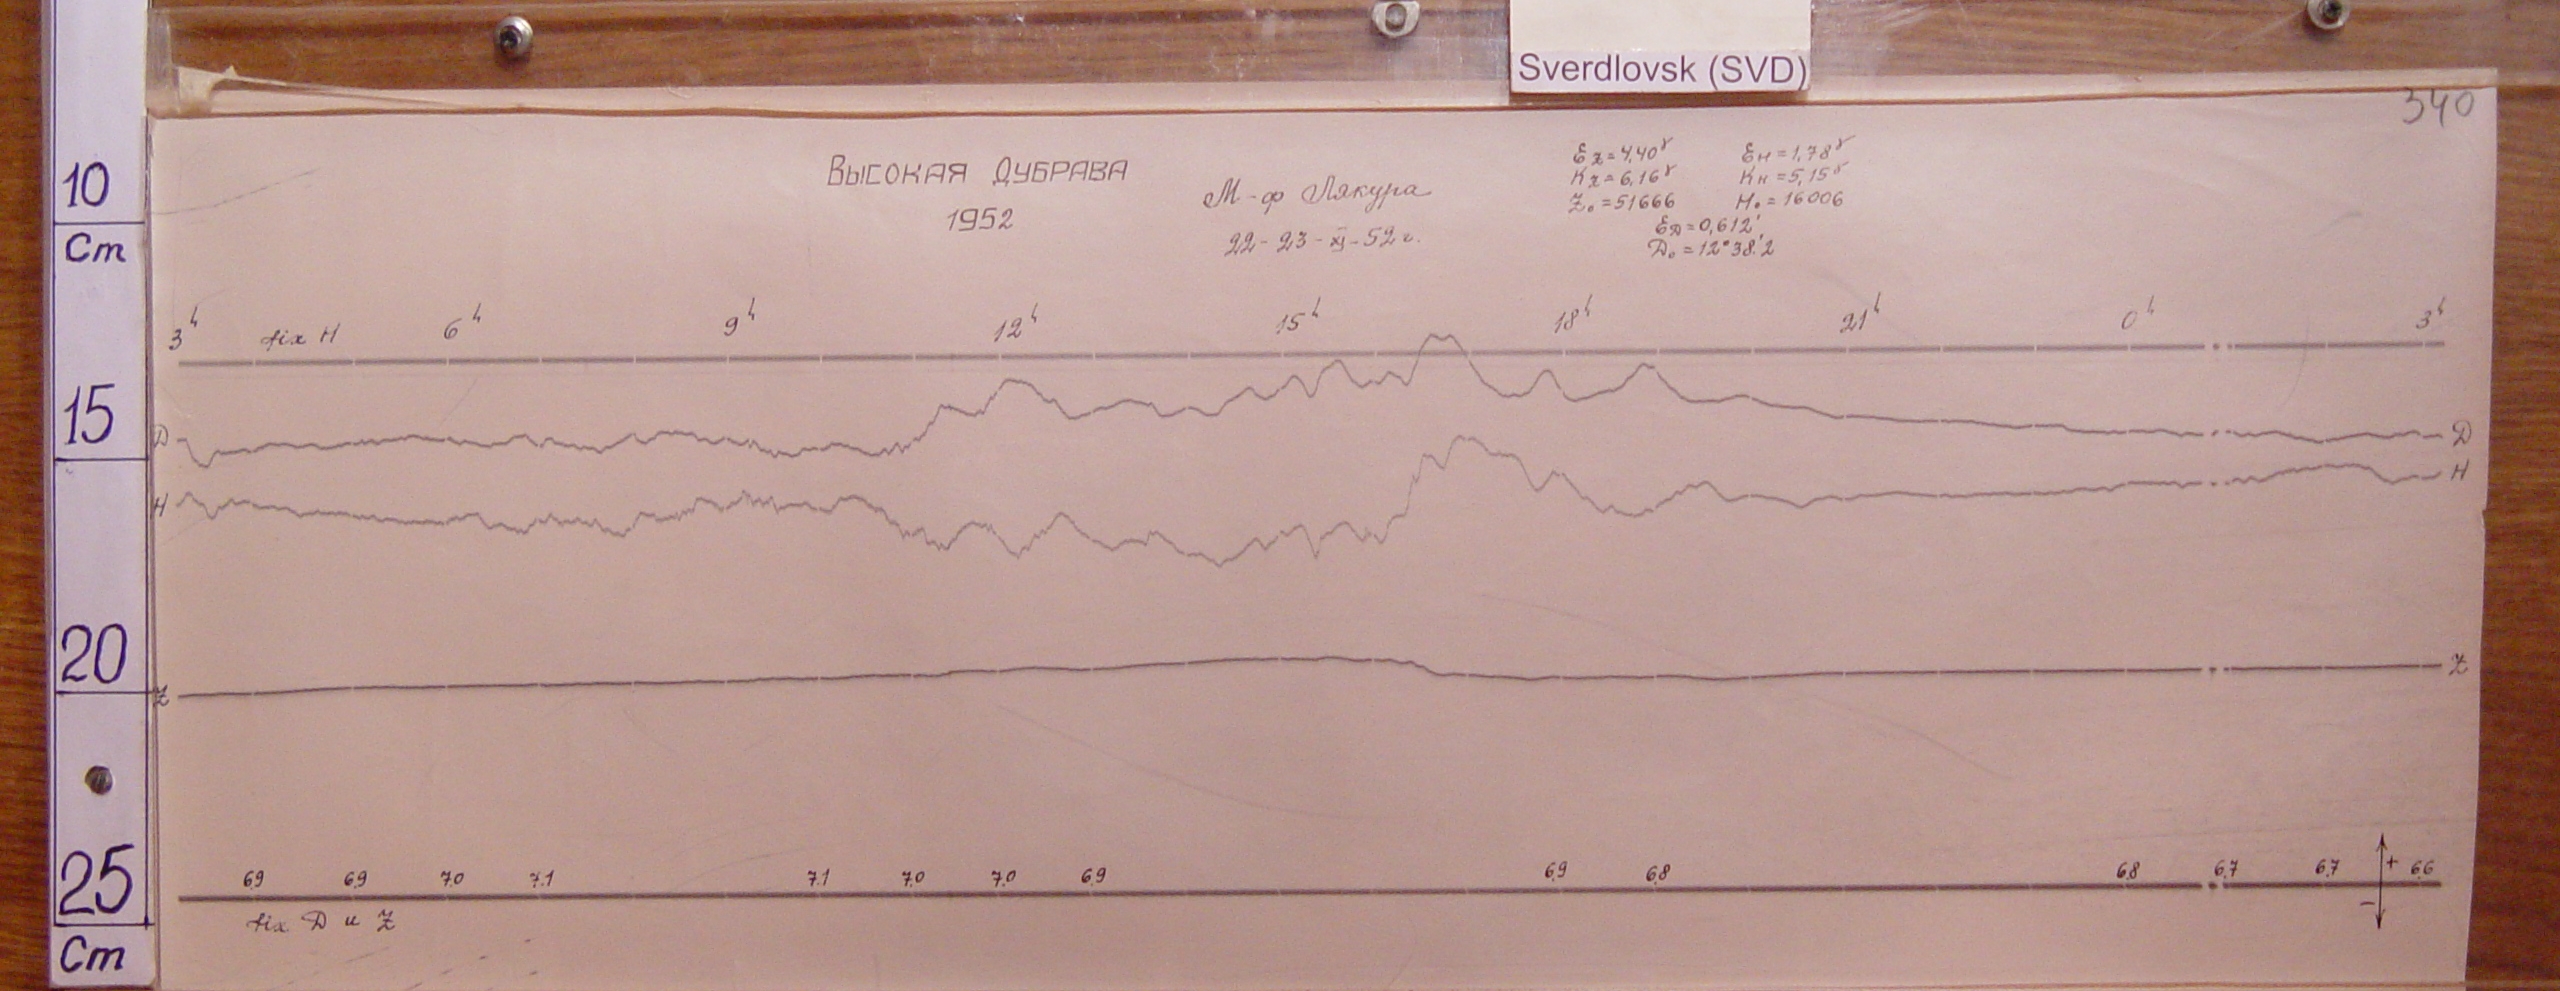 Sverdlovsk (SVD)
340
10
Cm
15
20
25
Cm
ВЫСОКАЯ ДУБРАВА
1952
М-ф Лякура
22-23-XI-52 г.
Ez=4,40γ Eн=1,78γ
Kz=6,16γ Kн=5,15γ
Z₀=51666 H₀=16006
Eд=0,612'
D₀=12°38.'2
3h fix H 6h 9h 12h 15h 18h 21h 0h 3h
D D
H H
Z Z
6.9 6.9 7.0 7.1 7.1 7.0 7.0 6.9 6.9 6.8 6.8 6.7 6.7 + 6.6
−
fix D и Z